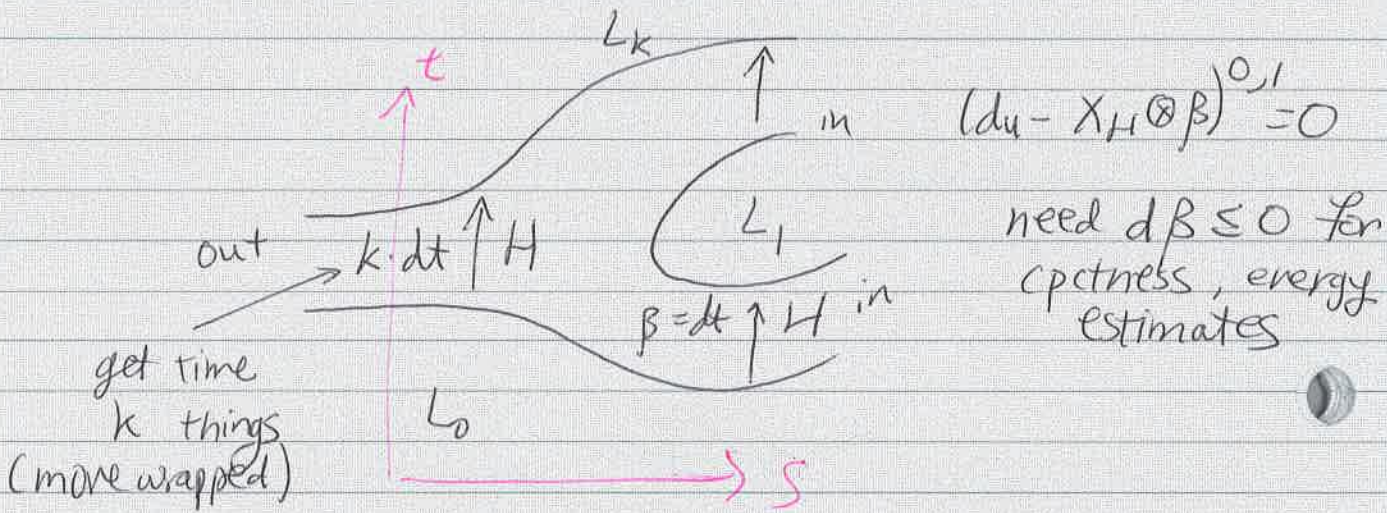 L_k
t
in
(du - X_H ⊗ β)^{0,1} = 0
out
k·dt
H
L_1
need dβ ≤ 0 for
cpctness, energy
estimates
β = dt
H
in
get time
k things
(more wrapped)
L_0
s